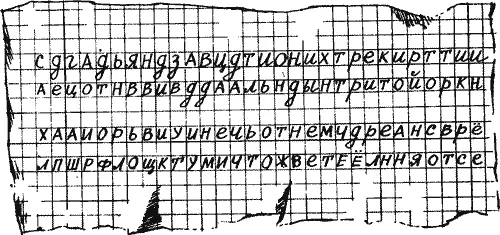 СДГАДЬЯНДЗАВЦДТИОНИХТРЕКИРТТИИ
АЕЦОТНВВИВДДААЛЬНДЫНТРИТОЙОРКН
ХААИОРЬВИУИНЕЧЬОТНЕМЧДРЕАНСВРЁ
ЛПШРФЛОЩКТУМИЧТОЖВЕТЕЁЛННЯОТСЕ